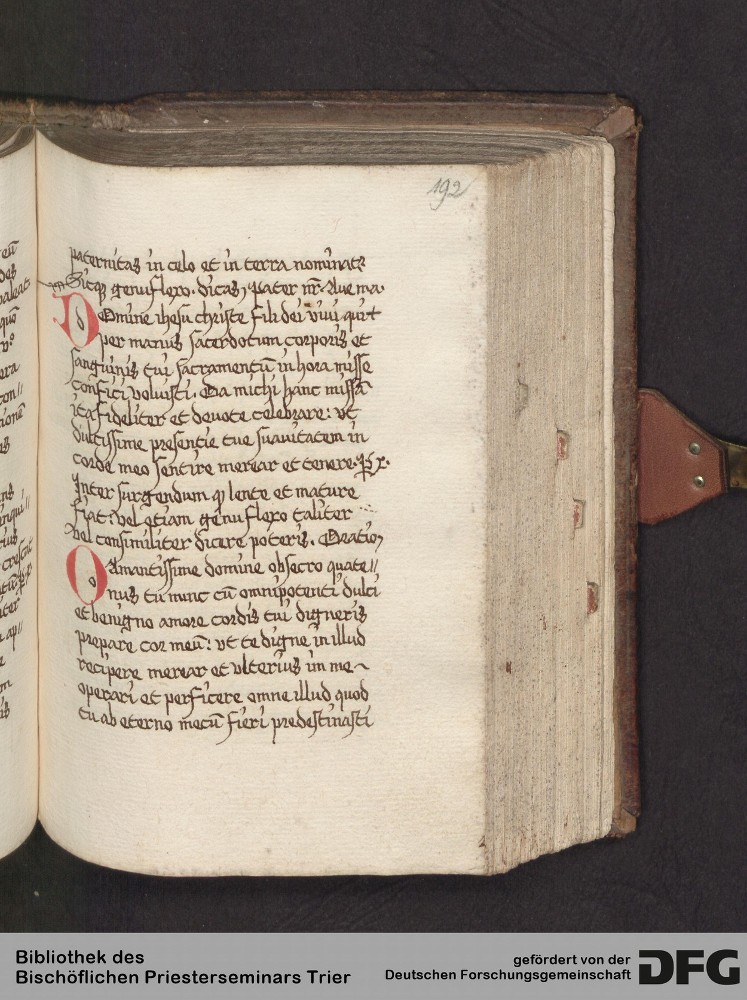 192
paternitas in celo et in terra nominatr
Sicqz genuflexo. dicas, pater nr. Aue ma.
Domine ihesu christe fili dei viui qui t
per manus sacerdotum corporis et
sanguinis tui sacramentū in hora misse
confici voluisti. Da michi hanc missā
ita fideliter et deuote celebrare: vt
dulcissime presentie tue suauitatem in
corde meo sentire merear et tenere.
Inter surgendum qz lente et mature
fiat: vel etiam genuflexo taliter
vel consimiliter dicere poteris. Oratio
O amantissime domine obsecro quate//
nus tu nunc cū omnipotenti dulci
et benigno amore cordis tui digneris
prepare cor meū: vt te digne in illud
recipere merear et vlterius in me
operari et perficere omne illud quod
tu ab eterno mecū fieri predestinasti
Bibliothek des
Bischöflichen Priesterseminars Trier
gefördert von der
Deutschen Forschungsgemeinschaft
DFG